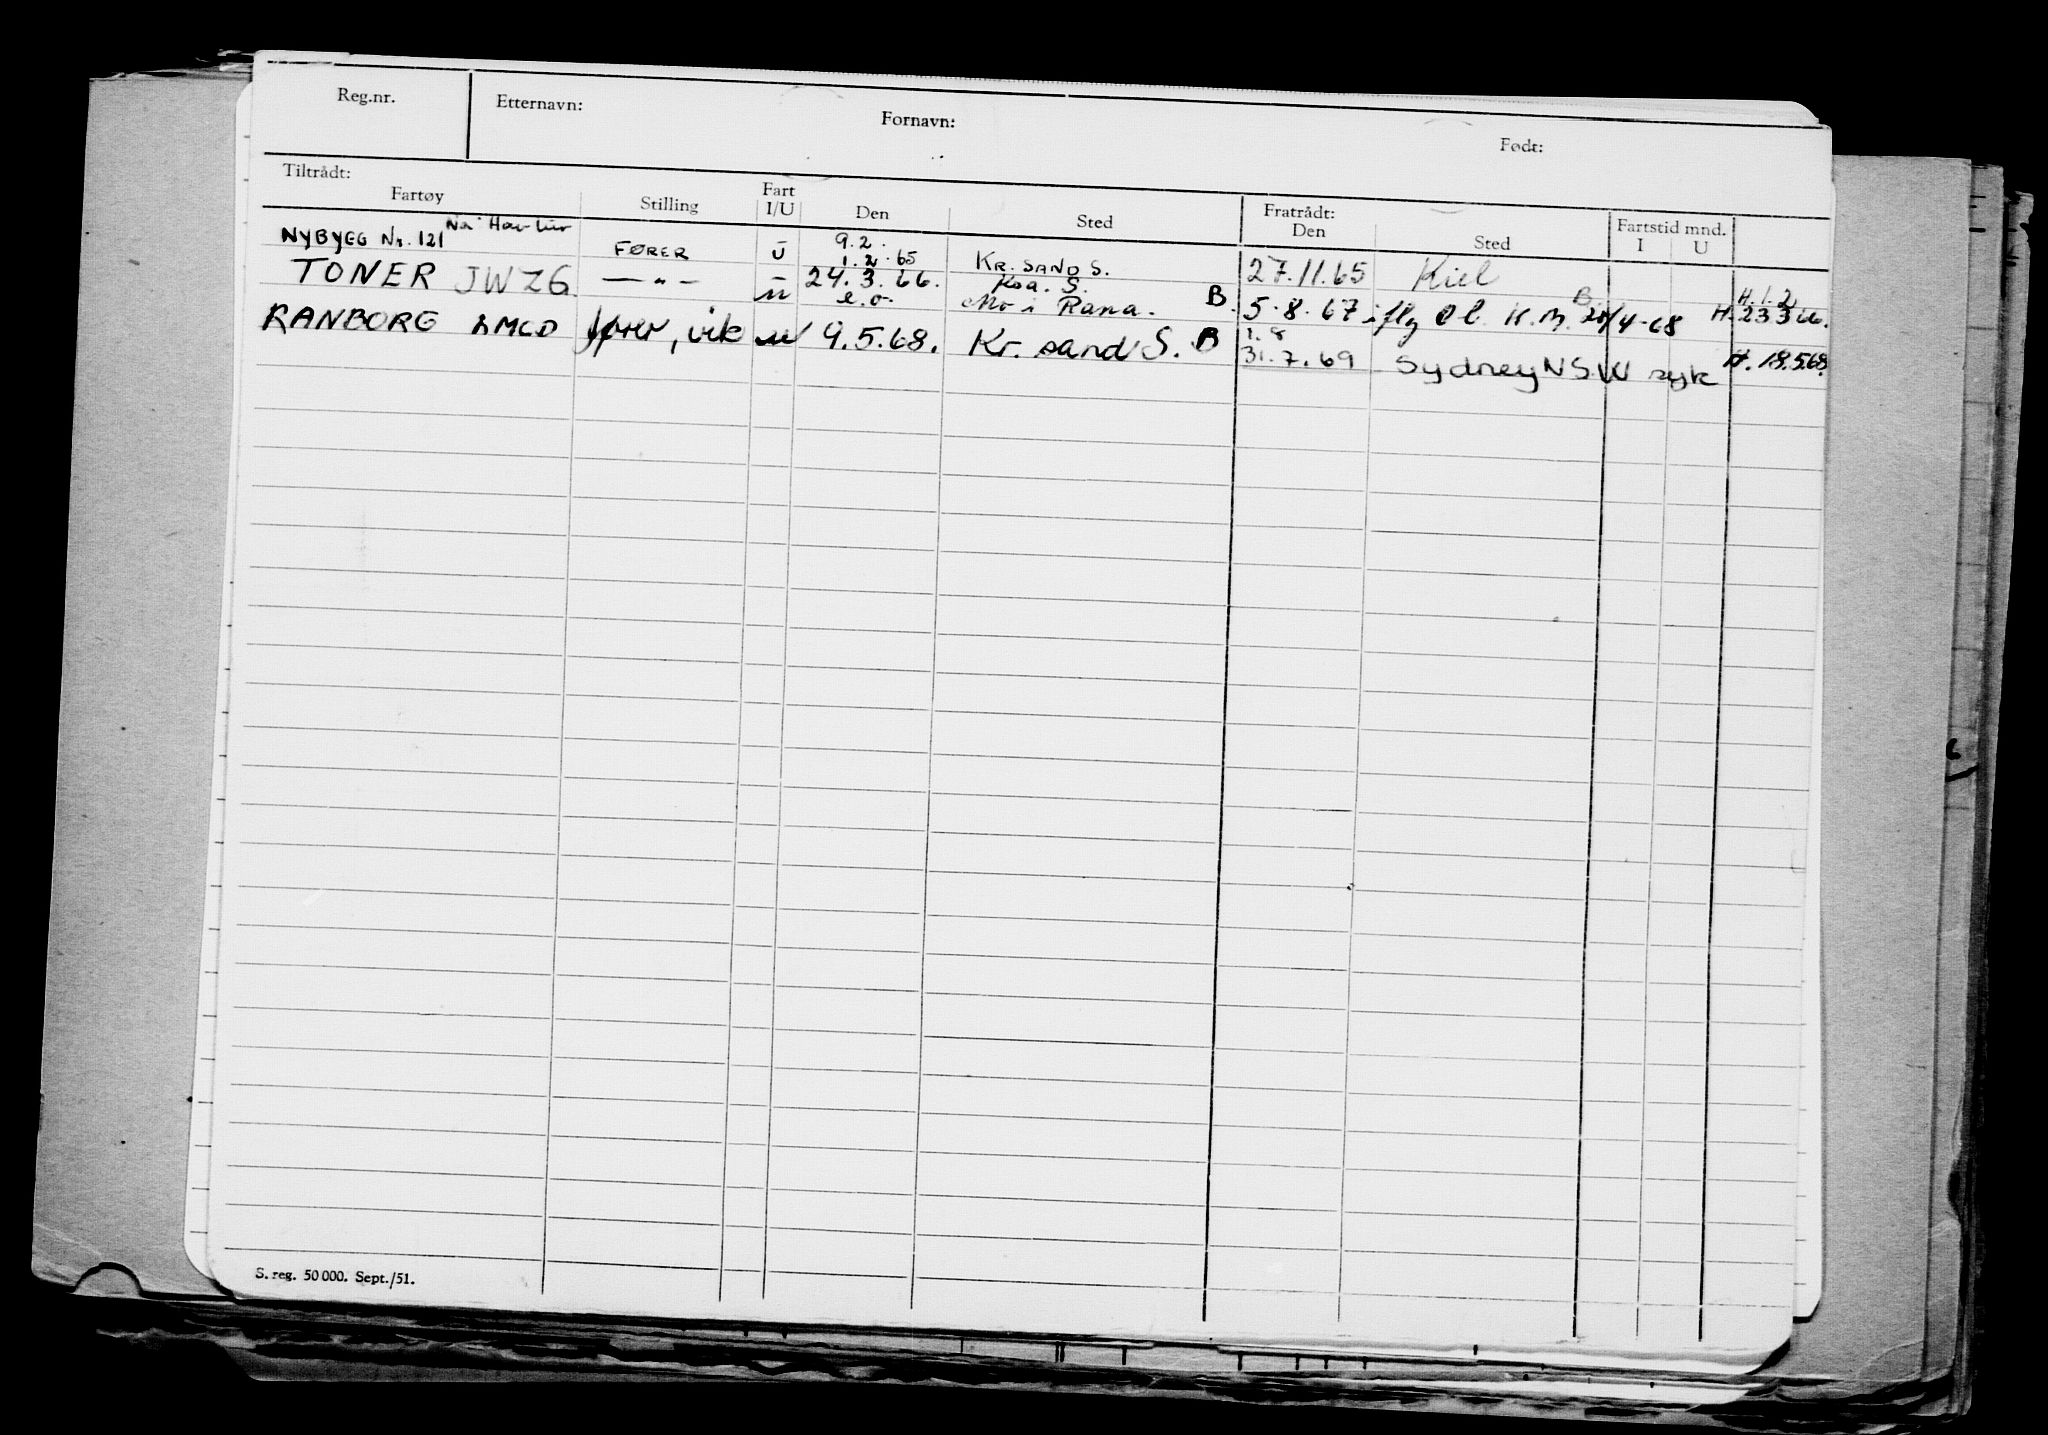 Reg.nr. Etternavn: Fornavn: Født:
Tiltrådt: Fratrådt: Fartstid mnd.
Fartøy Stilling Fart I/U Den Sted Den Sted I U
NYBYGG Nr. 121 FØRER U 9.2. 1.2.65 KR. SAND S. 27.11.65 Kiel
TONER JWZG — " — — 24.3.66. Krs. S. H. 1.2
u e.o. Mo i Rana. B. 5.8.67 i flg Ol. K.M. B. 20/4-68 H. 23366.
RANBORG LMCD fører, vik u 9.5.68. Kr. sand S. B 1.8 31.7.69 Sydney NSW syk H. 18.5.68.
S. reg. 50 000. Sept./51.